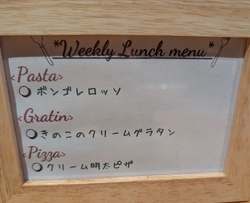 *Weekly Lunch menu*
<Pasta>
○ボンゴレロッソ
<Gratin>
○きのこのクリームグラタン
<Pizza>
○クリーム明太ピザ